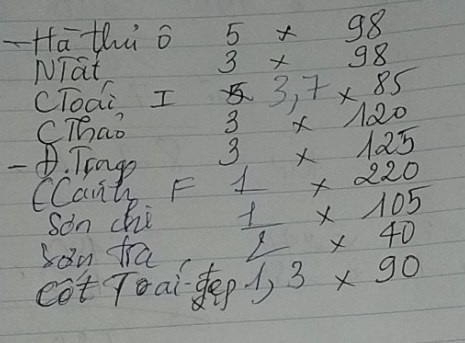 - Hà thủ ô 5 x 98
NTất 3 x 98
CToái I 3,7 x 85
CThảo 3 x 120
- Đ.Trọng 3 x 125
CCanh F 1 x 220
Sơn chi 1 x 105
Sơn tra 2 x 40
Cốt Toái đẹp 1,3 x 90